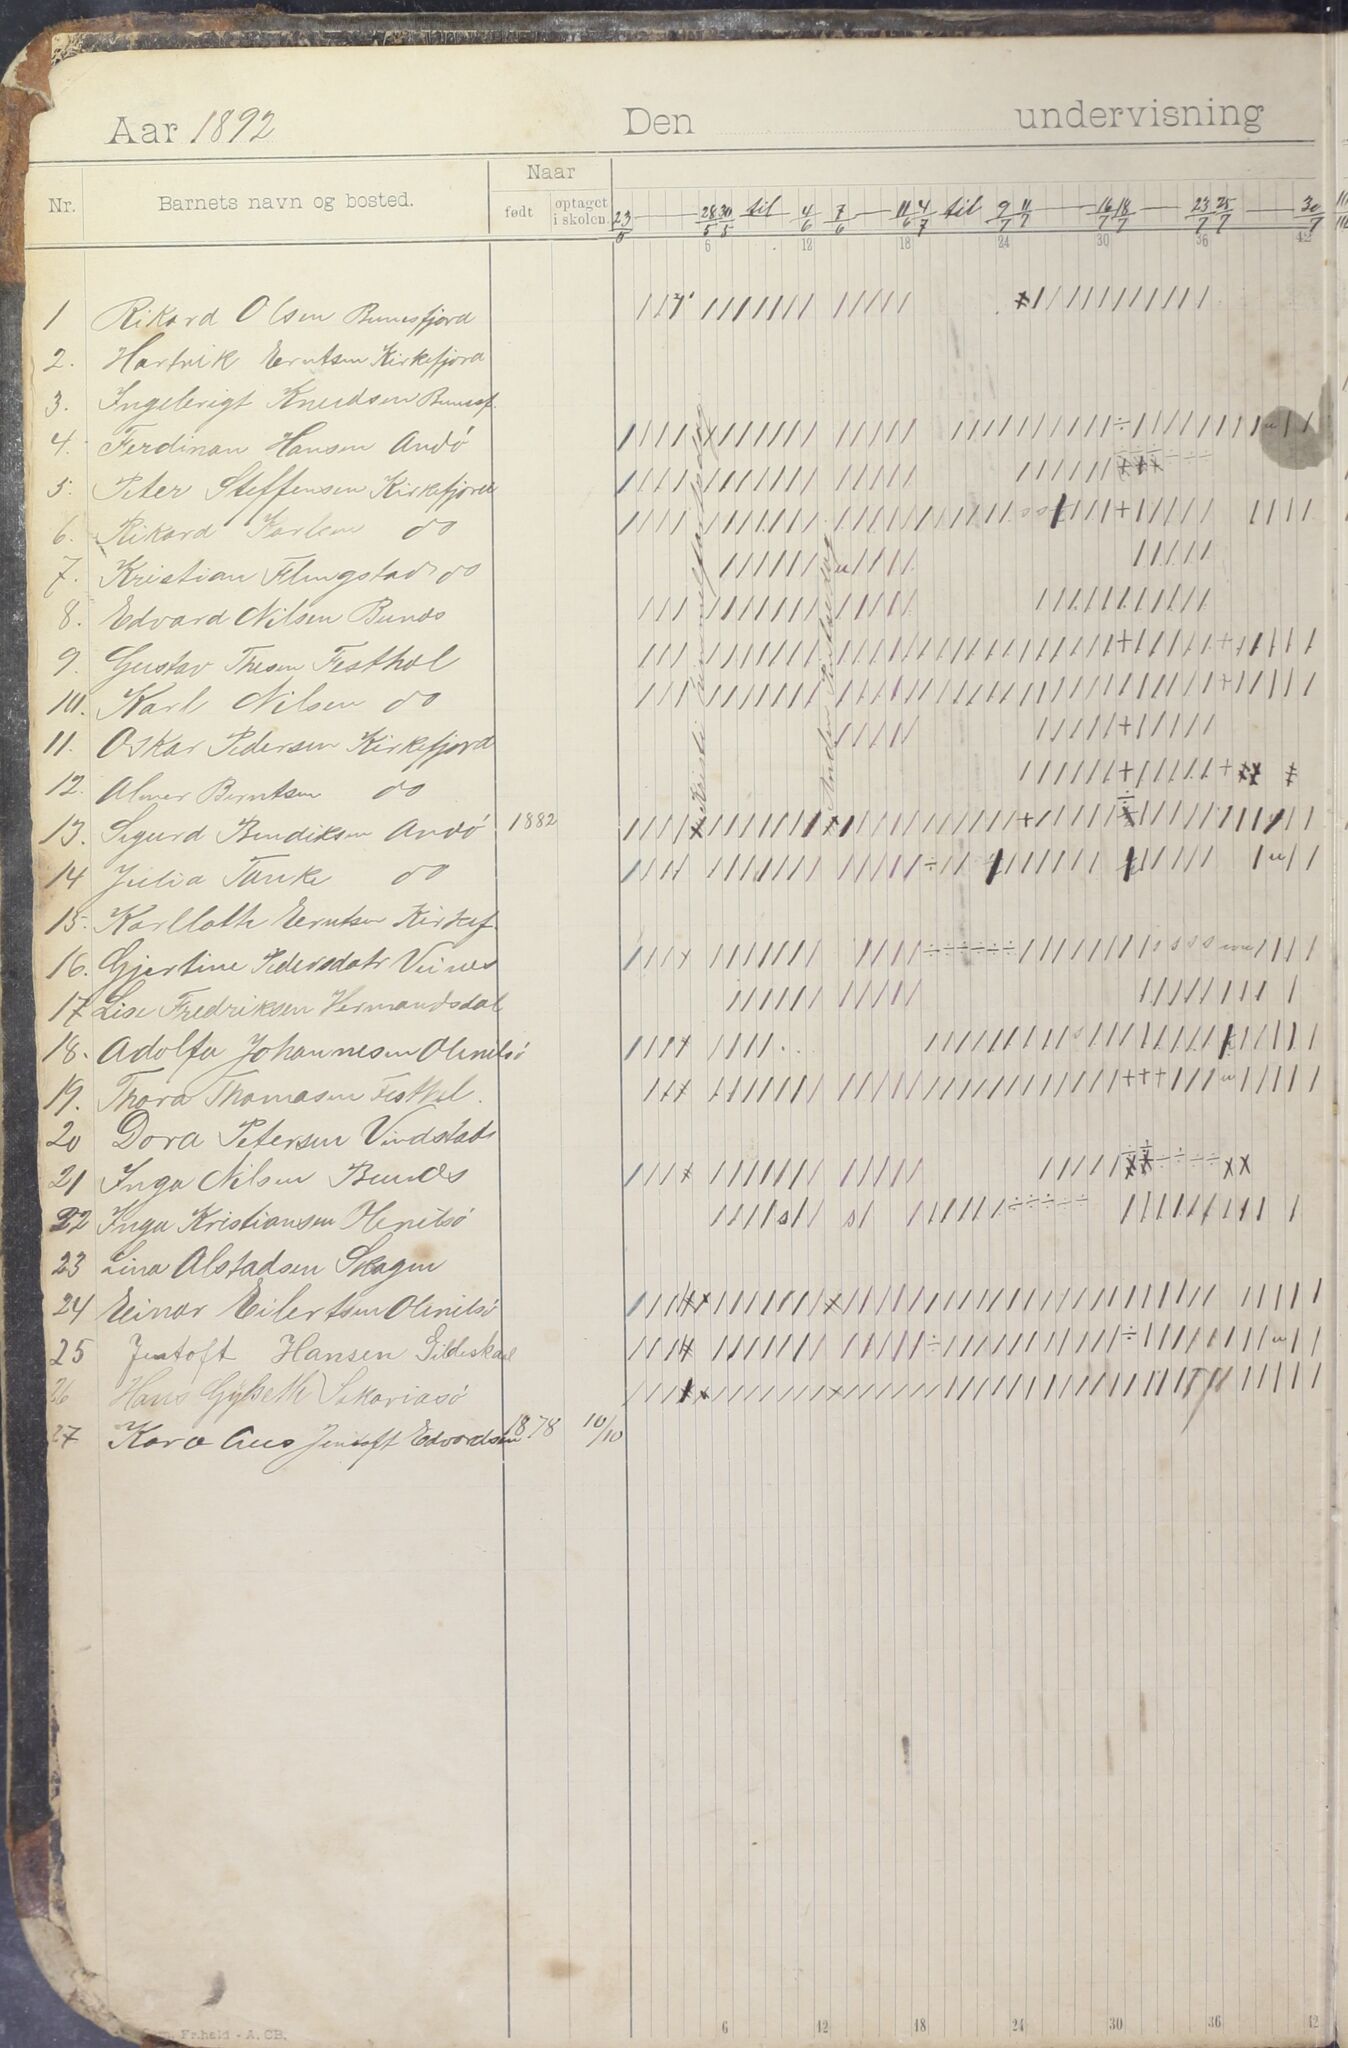 Aar 1892 Den undervisning
Nr. Barnets navn og bosted. Naar født optaget i skolen.
23/5 28/5 30/5 til 4/6 7/6 11/6 4/7 til 9/7 11/7 16/7 18/7 23/7 25/7 30/7
6 12 18 24 30 36 42
1 Rikard Olsen Bunesfjord
2. Hartvik Berntsen Kirkefjord
3. Ingebrigt Knudsen Bunesf.
4. Ferdinan Hansen Andö
5. Peter Steffensen Kirkefjord
6. Rikard Karlsen do
7. Kristian Flingstad do
8. Edvard Nilsen Bunes
9. Gustav Thesen Festhel
10. Karl Nilsen do
11. Oskar Pedersen Kirkefjord
12. Almer Berntsen do
13. Sigurd Bendiksen Andö 1882
14 Julia Tanke do
15. Karllotte Berntsen Kirkef
16. Gjertine Pedersdatr Vines
17 Lise Fredriksen Hermandsdal
18. Adolfa Johannesen Olenilsö
19. Thora Thomasen Festhel.
20 Dora Petersen Vindstad
21 Inga Nilsen Bunes
22 Inga Kristiansen Olenilsö
23 Lina Alstadsen Skagen
24 Einar Eilertsen Olenilsö
25 Jentoft Hansen Gildeskaal
26 Hans Sakariasö
27 Kara Jentoft Edvardsen 1878 10/10
Kristi himmelfartsdag
Anden Pintsedag
6 12 18 24 30 36 42